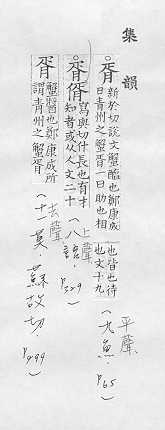 集韻
胥 新於切說文蟹醢也鄭康成
曰青州之蟹胥一曰助也相
也皆也待
也文十九
平聲
(九魚 P65)
胥偦 寫與切什長也有才
知者或从人文二十
上聲
(八語, P329)
胥 蟹醬也鄭康成所
謂青州之蟹胥
去聲
(十一莫,蘇故切. P499.)